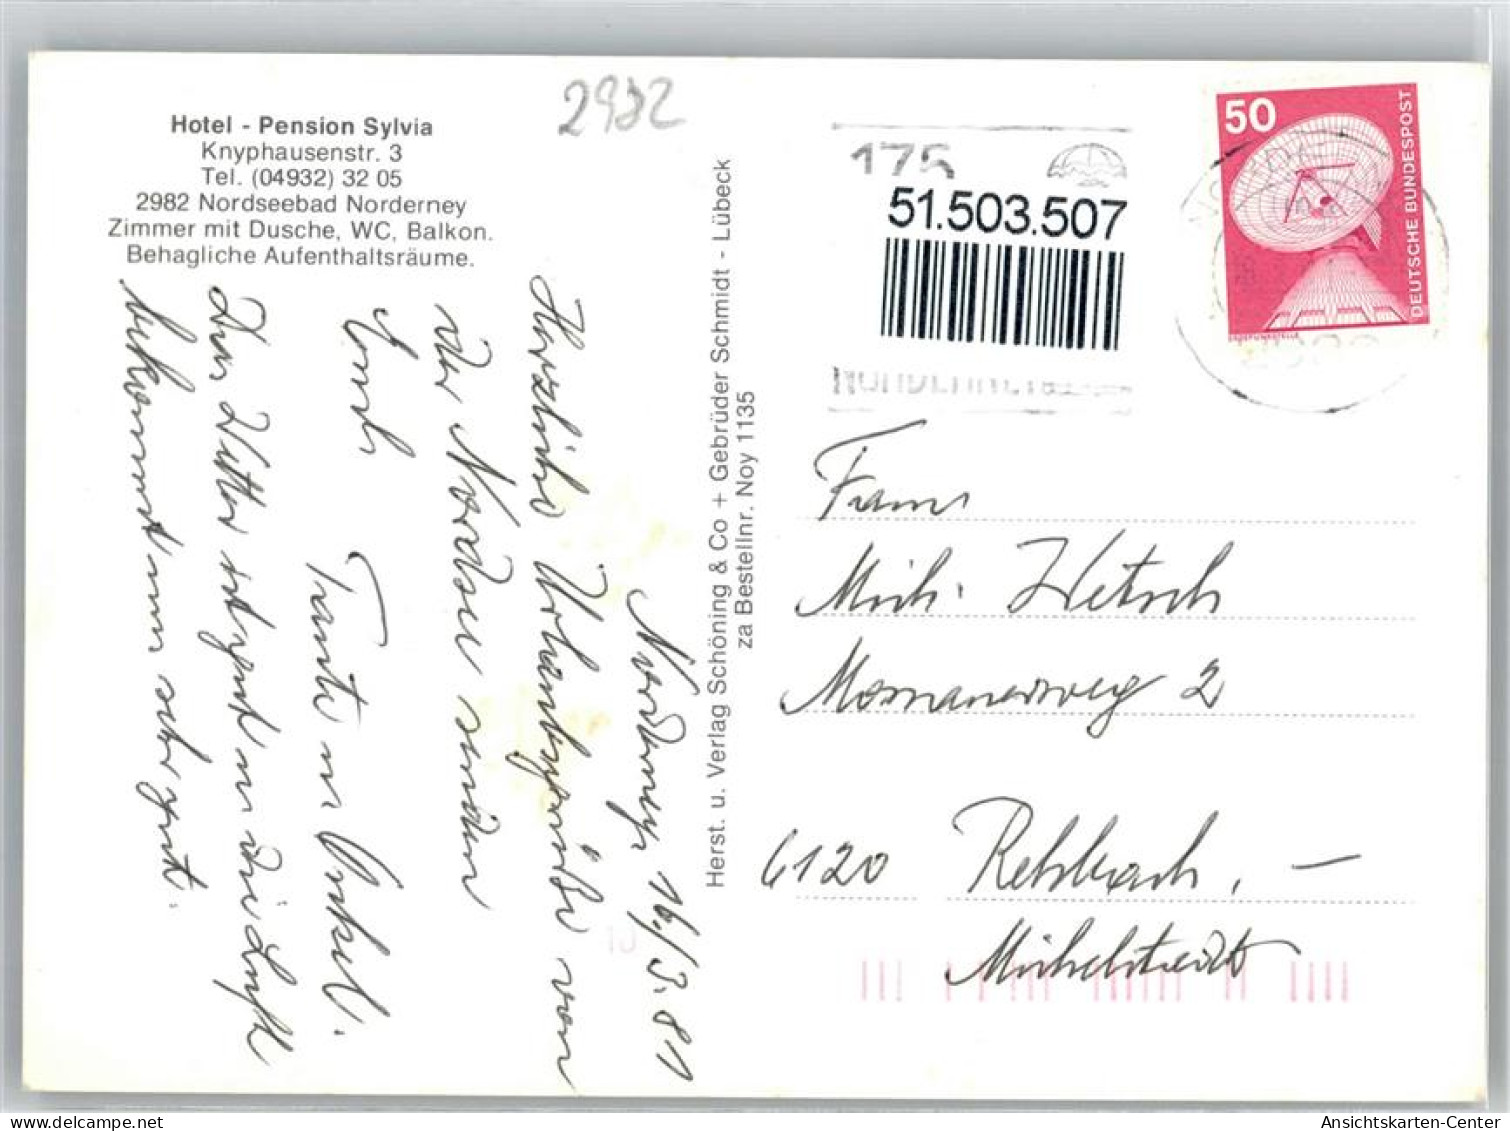 Hotel - Pension Sylvia
Knyphausenstr. 3
Tel. (04932) 32 05
2982 Nordseebad Norderney
Zimmer mit Dusche, WC, Balkon.
Behagliche Aufenthaltsräume.
2982
Norderney, 16./3.81
Herzliche Urlaubsgrüße von
der Nordsee senden
Euch
Tante u. Onkel.
Das Wetter ist gut u. die Luft
bekommt uns sehr gut.
Herst. u. Verlag Schöning & Co + Gebrüder Schmidt - Lübeck
za Bestellnr. Noy 1135
175
51.503.507
50
DEUTSCHE BUNDESPOST
Fam.
Mich. Wetsch
Momarterweg 2
6120 Rehbach, –
Michelstadt
Ansichtskarten-Center